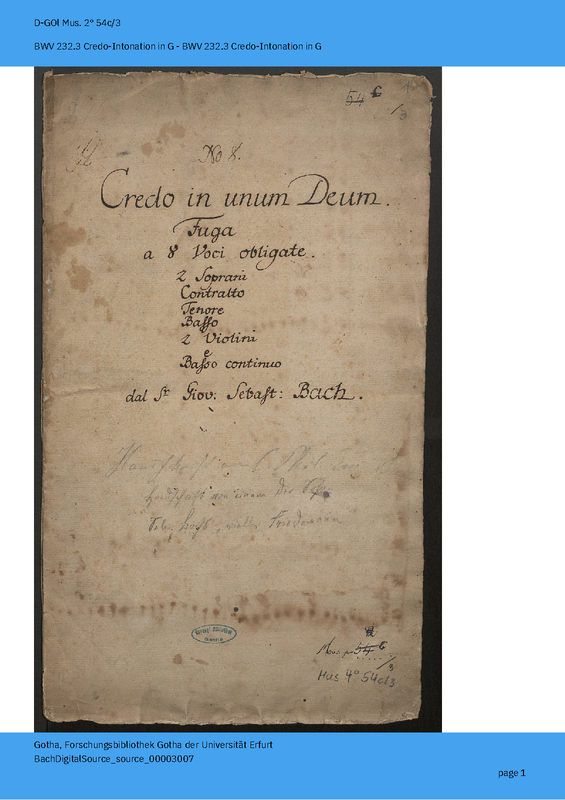 D-GOl Mus. 2° 54c/3
BWV 232.3 Credo-Intonation in G - BWV 232.3 Credo-Intonation in G
54 c
/3
No 8.
Credo in unum Deum.
Fuga
a 8 Voci obligate.
2 Soprani
Contralto
Tenore
Basso
2 Violini
e
Basso continuo
dal Sr Giov: Sebast: Bach.
Mus. 4° 54c/3
Gotha, Forschungsbibliothek Gotha der Universität Erfurt
BachDigitalSource_source_00003007
page 1